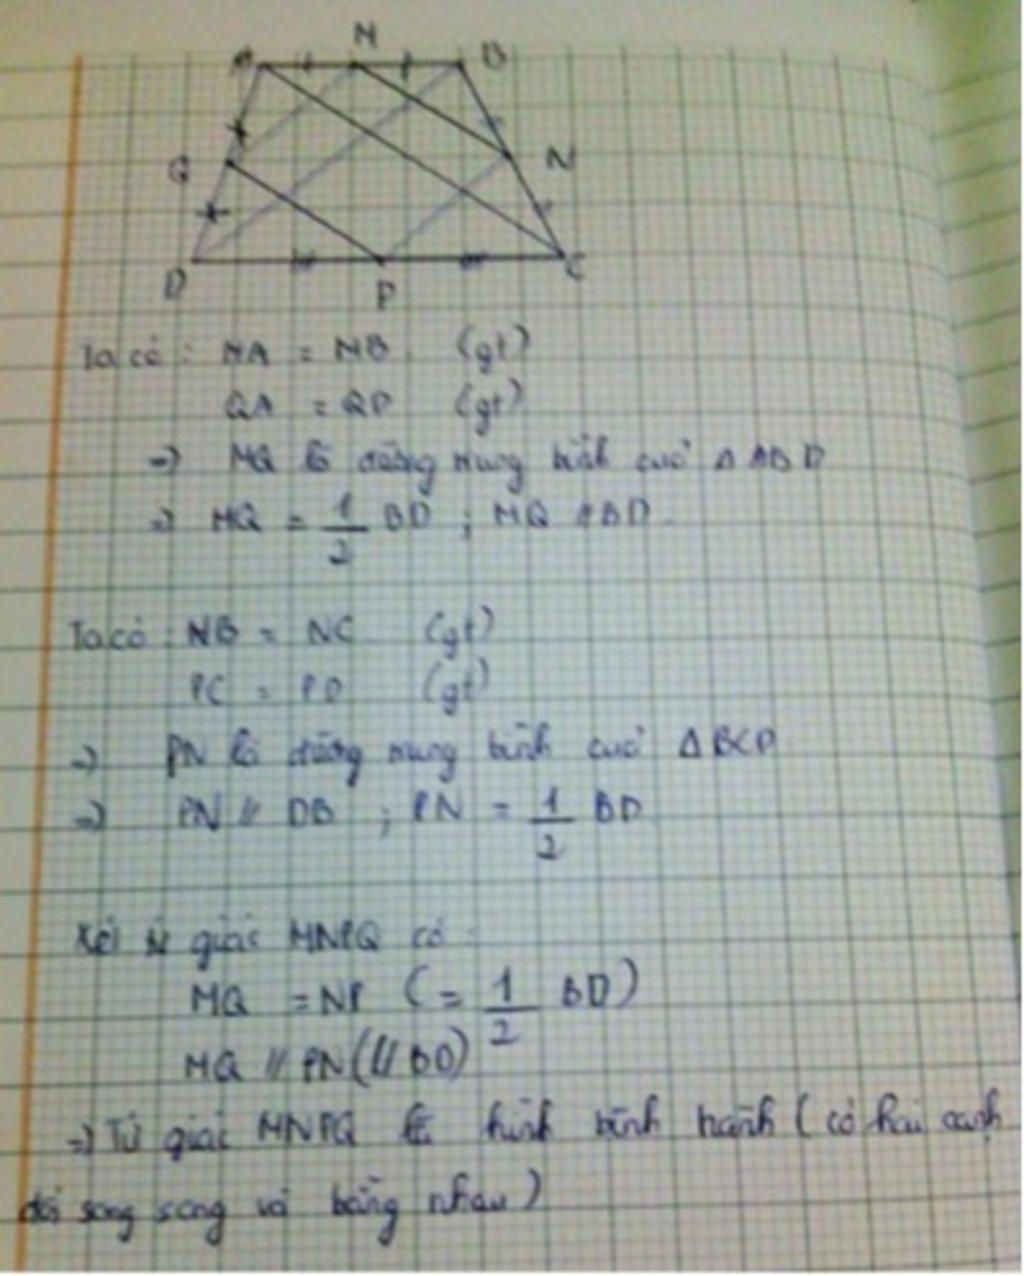 M
A
B
Q
N
D
P
C
Ta có : MA = MB (gt)
QA = QD (gt)
=> MQ là đường trung bình của Δ ABD
=> MQ = 1/2 BD ; MQ // BD
Ta có : NB = NC (gt)
PC = PD (gt)
=> PN là đường trung bình của Δ BCD
=> PN // DB ; PN = 1/2 BD
Xét tứ giác MNPQ có :
MQ = NP ( = 1/2 BD )
MQ // PN ( // BD )
=> Tứ giác MNPQ là hình bình hành ( có hai cạnh
đối song song và bằng nhau )